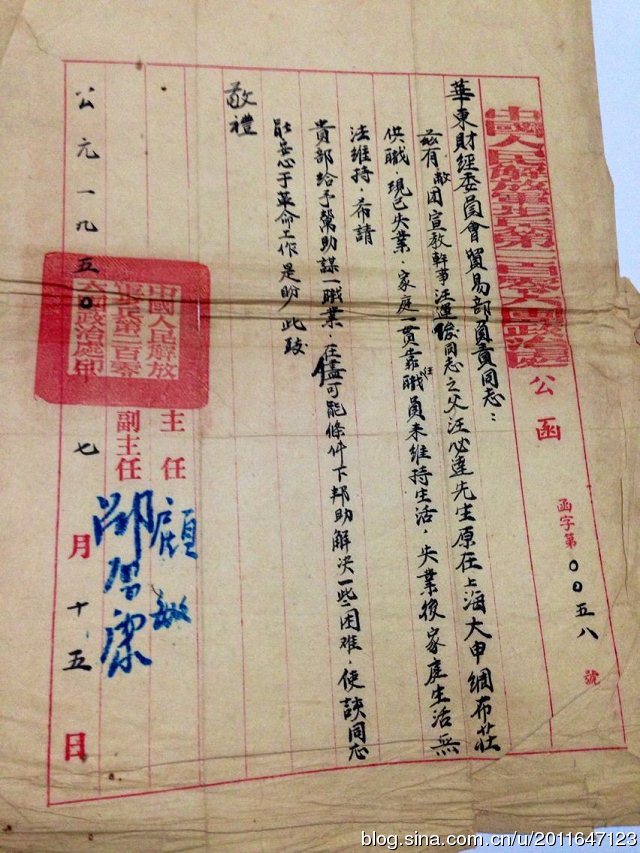 中國人民解放軍步兵第一百零六團政治處
公函
函字第00五八號
華東財經委員會貿易部負責同志：
茲有敝团宣教幹事汪運俊同志之父汪必達先生原在上海大申綢布莊
供職，現已失業，家庭一贯靠職員来維持生活，失業後家庭生活無
法維持，希請
貴部给予幫助謀一職業，在儘可能條件下邦助解决一些困难，使該同志
能安心于革命工作是盼 此致
敬禮
主任 顧敏
副主任 邵習康
中國人民解放
軍步兵第一百零
六團政治處印
公元一九五0 七月十五日
blog.sina.com.cn/u/2011647123